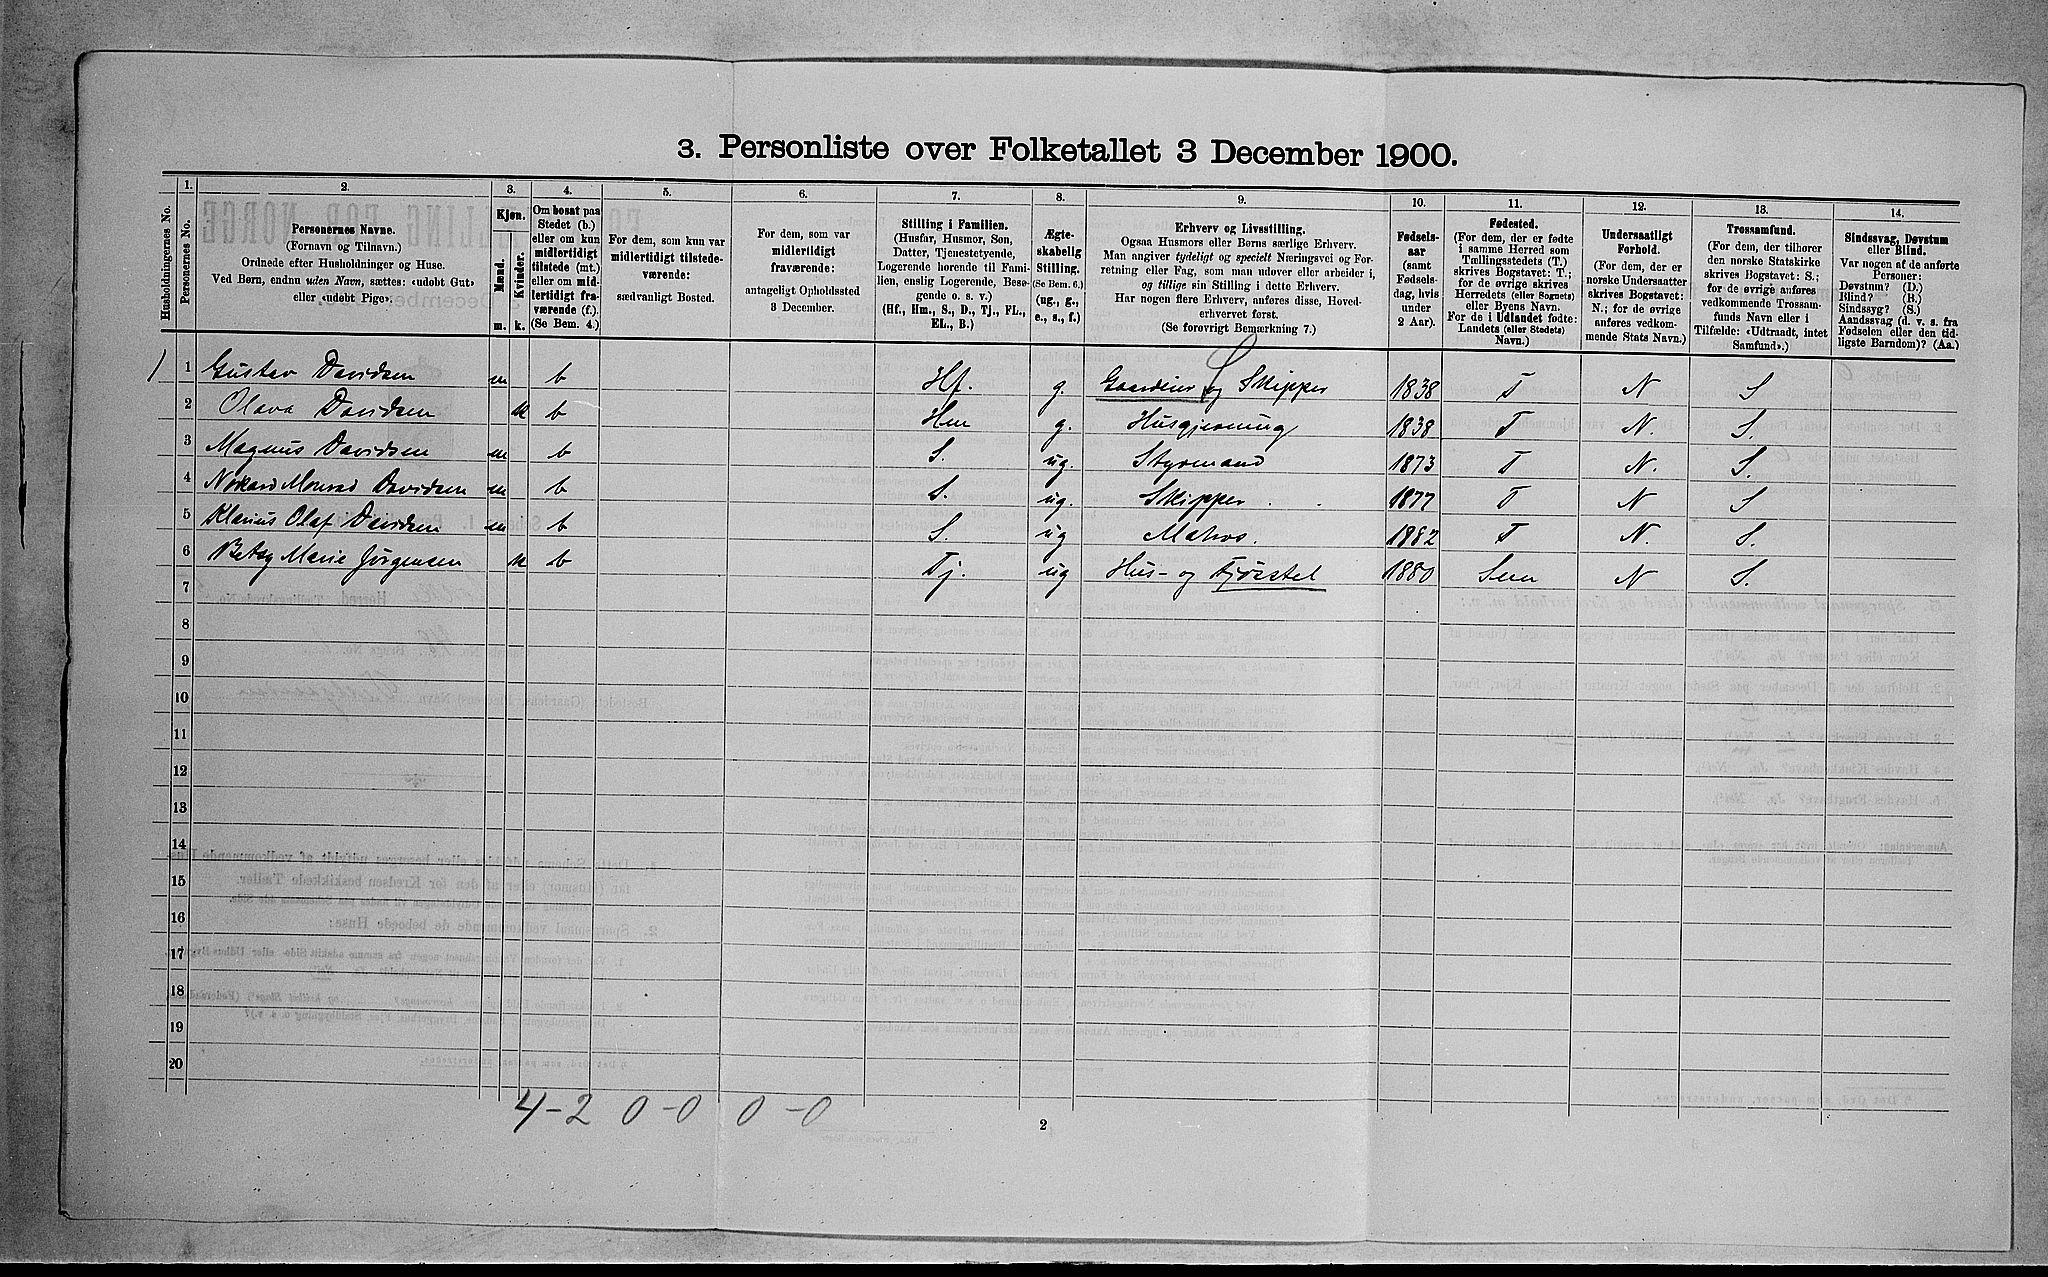 3. Personliste over Folketallet 3 December 1900.
Husholdningernes No.
1. Personernes No.
2. Personernes Navne.
(Fornavn og Tilnavn.)
Ordnede efter Husholdninger og Huse.
Ved Børn, endnu uden Navn, sættes: «udøbt Gut»
eller «udøbt Pige».
3. Kjøn.
Mænd. m.
Kvinder. k.
4. Om bosat paa
Stedet (b.)
eller om kun
midlertidigt
tilstede (mt.)
eller om mid-
lertidigt fra-
værende (f.).
(Se Bem. 4.)
5. For dem, som kun var
midlertidigt tilstede-
værende:
sædvanligt Bosted.
6. For dem, som var
midlertidigt
fraværende:
antageligt Opholdssted
3 December.
7. Stilling i Familien.
(Husfar, Husmor, Søn,
Datter, Tjenestetyende,
Logerende hørende til Fami-
lien, enslig Logerende, Besø-
gende o. s. v.)
(Hf., Hm., S., D., Tj., FL.,
EL., B.)
8. Ægte-
skabelig
Stilling.
(Se Bem. 6.)
(ug., g.,
e., s., f.)
9. Erhverv og Livsstilling.
Ogsaa Husmors eller Børns særlige Erhverv.
Man angiver tydeligt og specielt Næringsvei og For-
retning eller Fag, som man udøver eller arbeider i,
og tillige sin Stilling i dette Erhverv.
Har nogen flere Erhverv, anføres disse, Hoved-
erhvervet først.
(Se forøvrigt Bemærkning 7.)
10. Fødsels-
aar
(samt
Fødsels-
dag, hvis
under
2 Aar).
11. Fødested.
(For dem, der er fødte
i samme Herred som
Tællingsstedets (T.)
skrives Bogstavet: T.;
for de øvrige skrives
Herredets (eller Sognets)
eller Byens Navn.
For de i Udlandet fødte:
Landets (eller Stedets)
Navn.)
12. Undersaatligt
Forhold.
(For dem, der er
norske Undersaatter
skrives Bogstavet:
N.; for de øvrige
anføres vedkom-
mende Stats Navn.)
13. Trossamfund.
(For dem, der tilhører
den norske Statskirke
skrives Bogstavet: S.;
for de øvrige anføres
vedkommende Trossam-
funds Navn eller i
Tilfælde: «Udtraadt, intet
Samfund».)
14. Sindssvag, Døvstum
eller Blind.
Var nogen af de anførte
Personer:
Døvstum? (D.)
Blind? (B.)
Sindssyg? (S.)
Aandssvag (d. v. s. fra
Fødselen eller den tid-
ligste Barndom)? (Aa.)
1) 1 Gustav Davidsen m b Hf. g. Gaardeier og Skipper 1838 T N S
2 Olava Davidsen k b Hm g. Husgjerning 1838 T N. S.
3 Magnus Davidsen m b S. ug. Styrmand 1873 T N. S.
4 Monrad Davidsen m b S. ug. Skipper 1877 T N S
5 Klarius Olaf Davidsen m b S. ug Matros. 1882 T N. S.
6 Betsy Marie Jørgensen k b Tj. ug Hus- og Fjøsstel 1880 Sem N S.
7
8
9
10
11
12
13
14
15
16
17
18
19
20
4-2 0-0 0-0
2